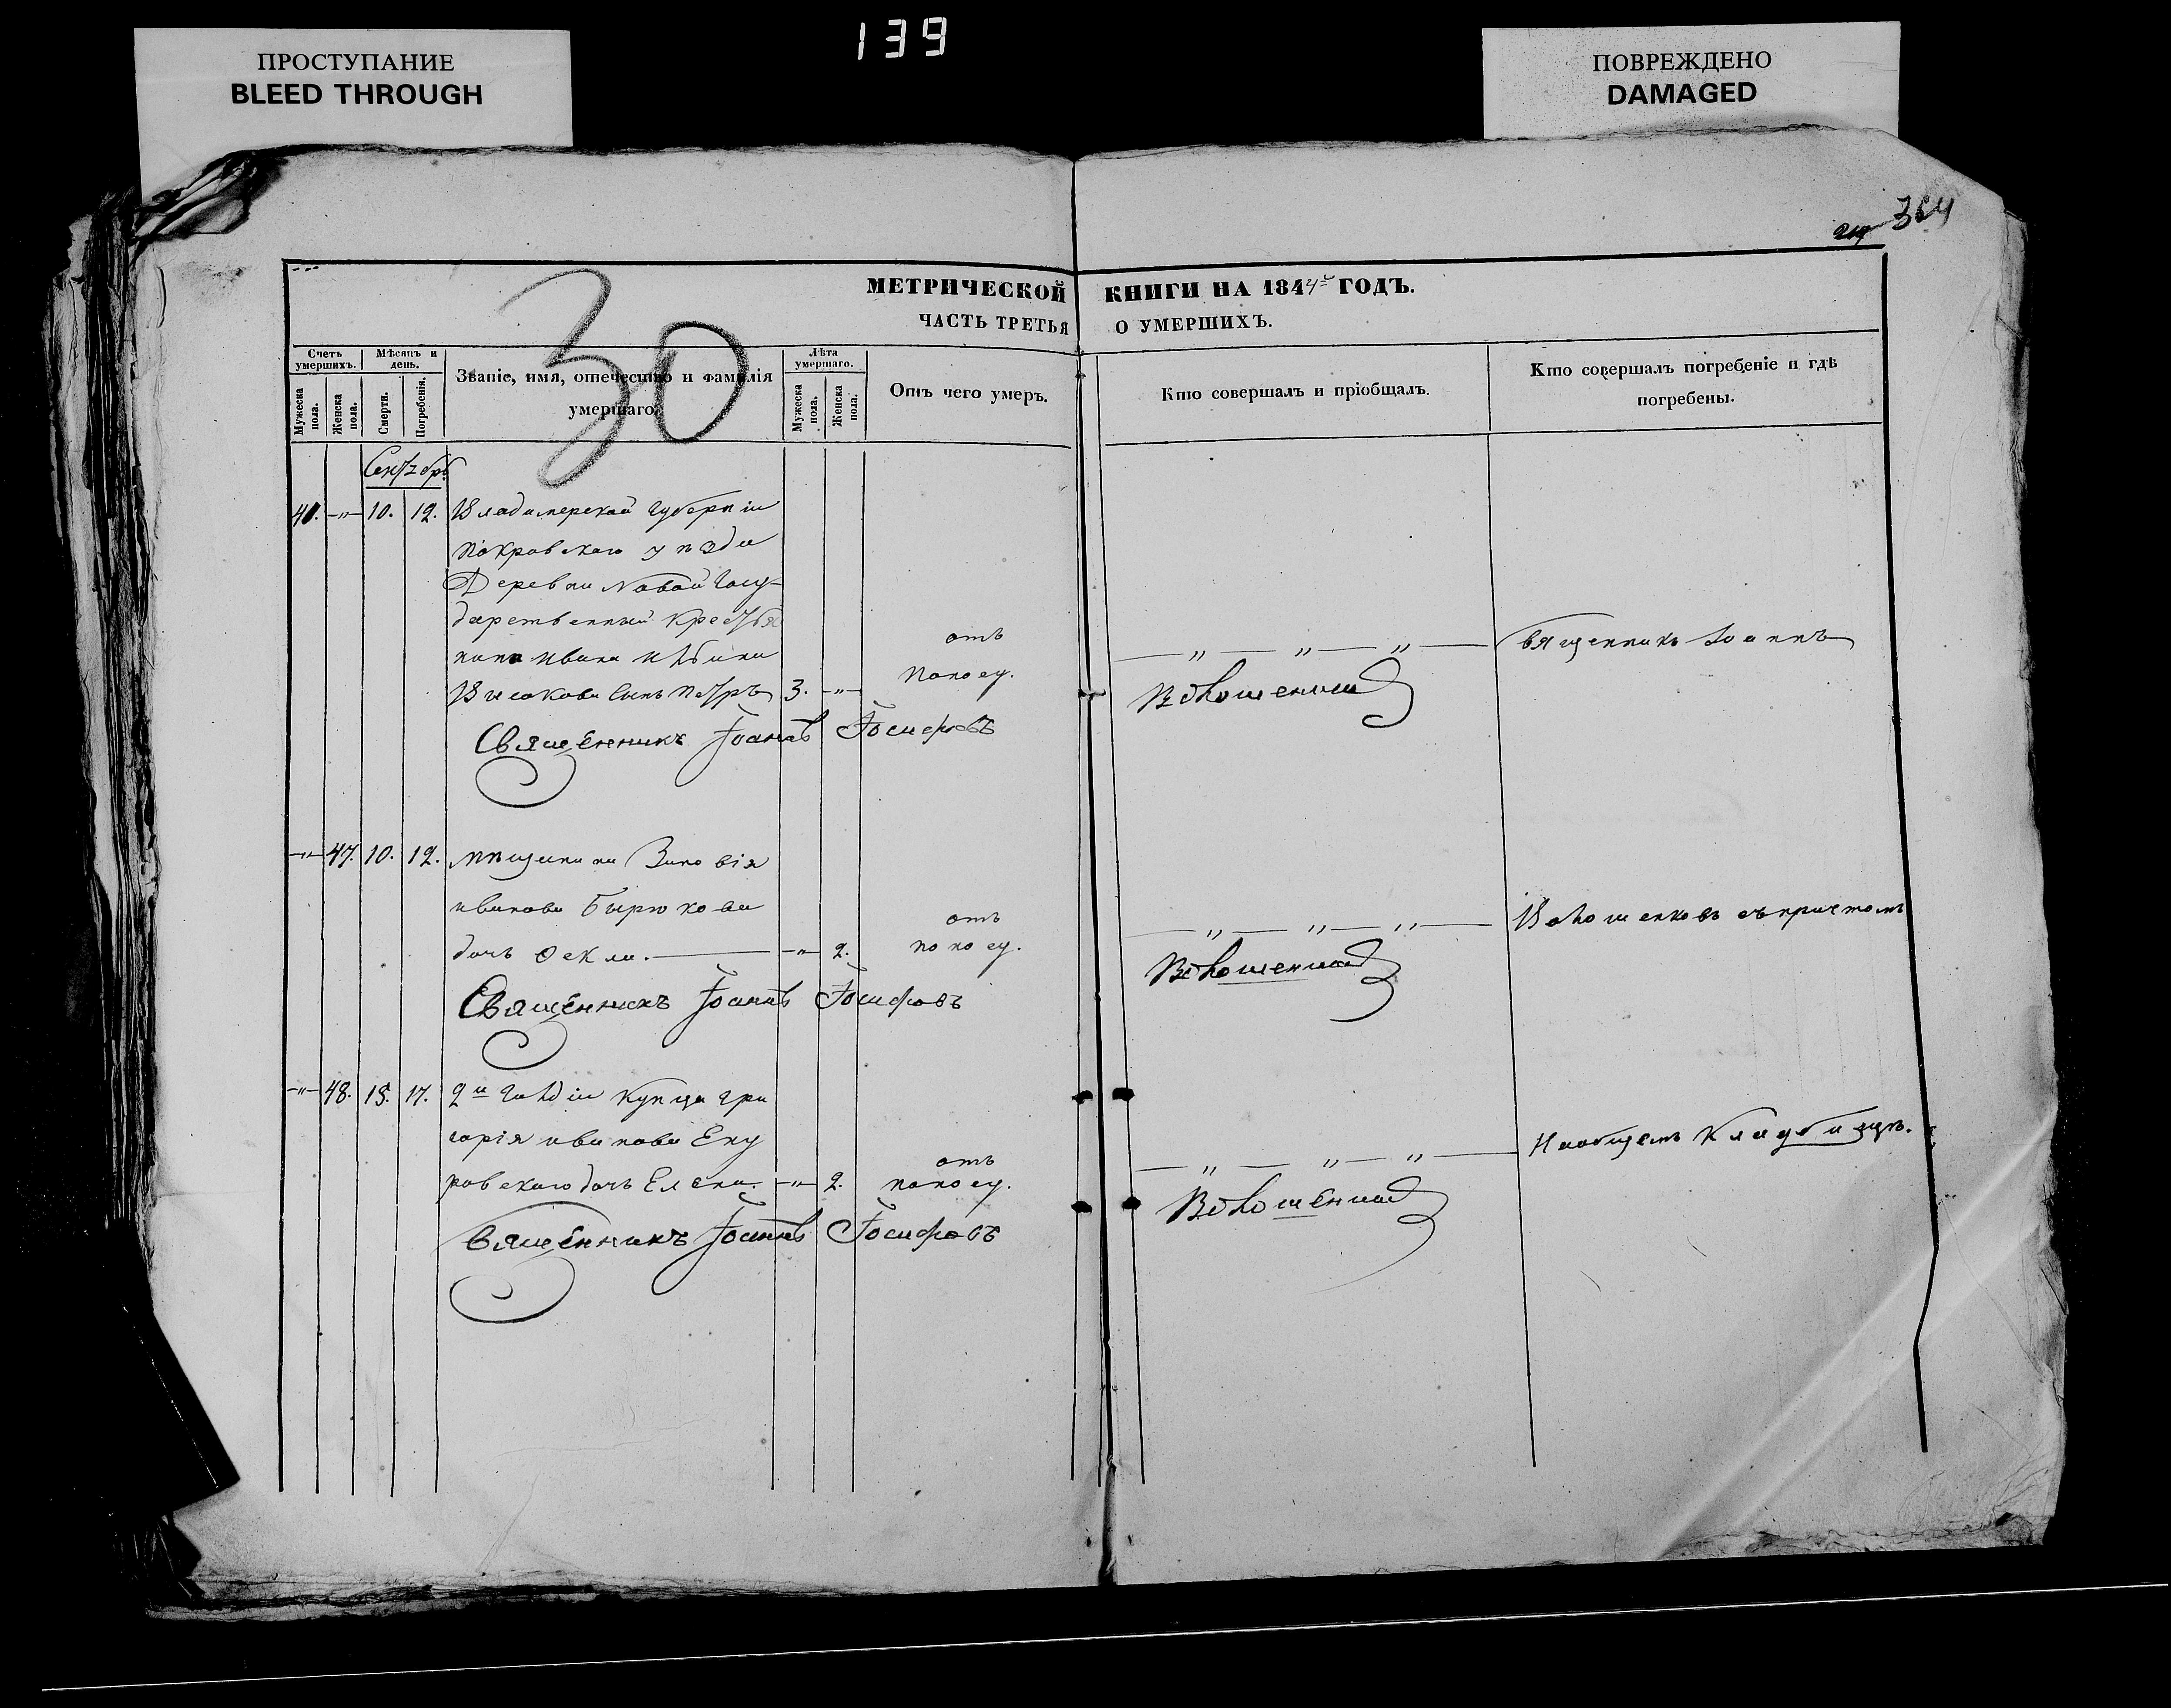 ПРОСТУПАНИЕ
BLEED THROUGH
139
ПОВРЕЖДЕНО
DAMAGED
364
30
МЕТРИЧЕСКОЙ КНИГИ НА 1844й ГОДЪ.
ЧАСТЬ ТРЕТЬЯ О УМЕРШИХЪ.
Счетъ умершихъ.
Мужеска пола.
Женска пола.
Мѣсяцъ и день.
Смерти.
Погребенія.
Званіе, имя, отечество и фамилія
умершаго.
Лѣта умершаго.
Мужеска пола.
Женска пола.
Отъ чего умеръ.
Кто совершалъ и пріобщалъ.
Кто совершалъ погребеніе и гдѣ
погребены.
Сентябрь
10. 12. Владимерской губерніи
Покровскаго уѣзда
Деревни Новой Госу-
дарственный крестья
нина Ивана
сынъ Петръ 3. -"-
отъ
поносу.
Священникъ Іоаннъ Іосифовъ
-"- 47. 10. 12. мѣщанки Зиновія
иванова Бирюкова
дочь Ѳекла. -"- 2.
отъ
поносу.
Священникъ Іоаннъ Іосифовъ
-"- 48. 15. 17. 2й гилдіи купца Гри
горія иванова Ену
ровскаго дочь Елена. -"- 2.
отъ
поносу.
Священникъ Іоаннъ Іосифовъ
— " — " — " —
— " — " — " —
— " — " — " —
Священникъ Іоаннъ
Волошенковъ съ причтомъ
На общемъ кладбищѣ.